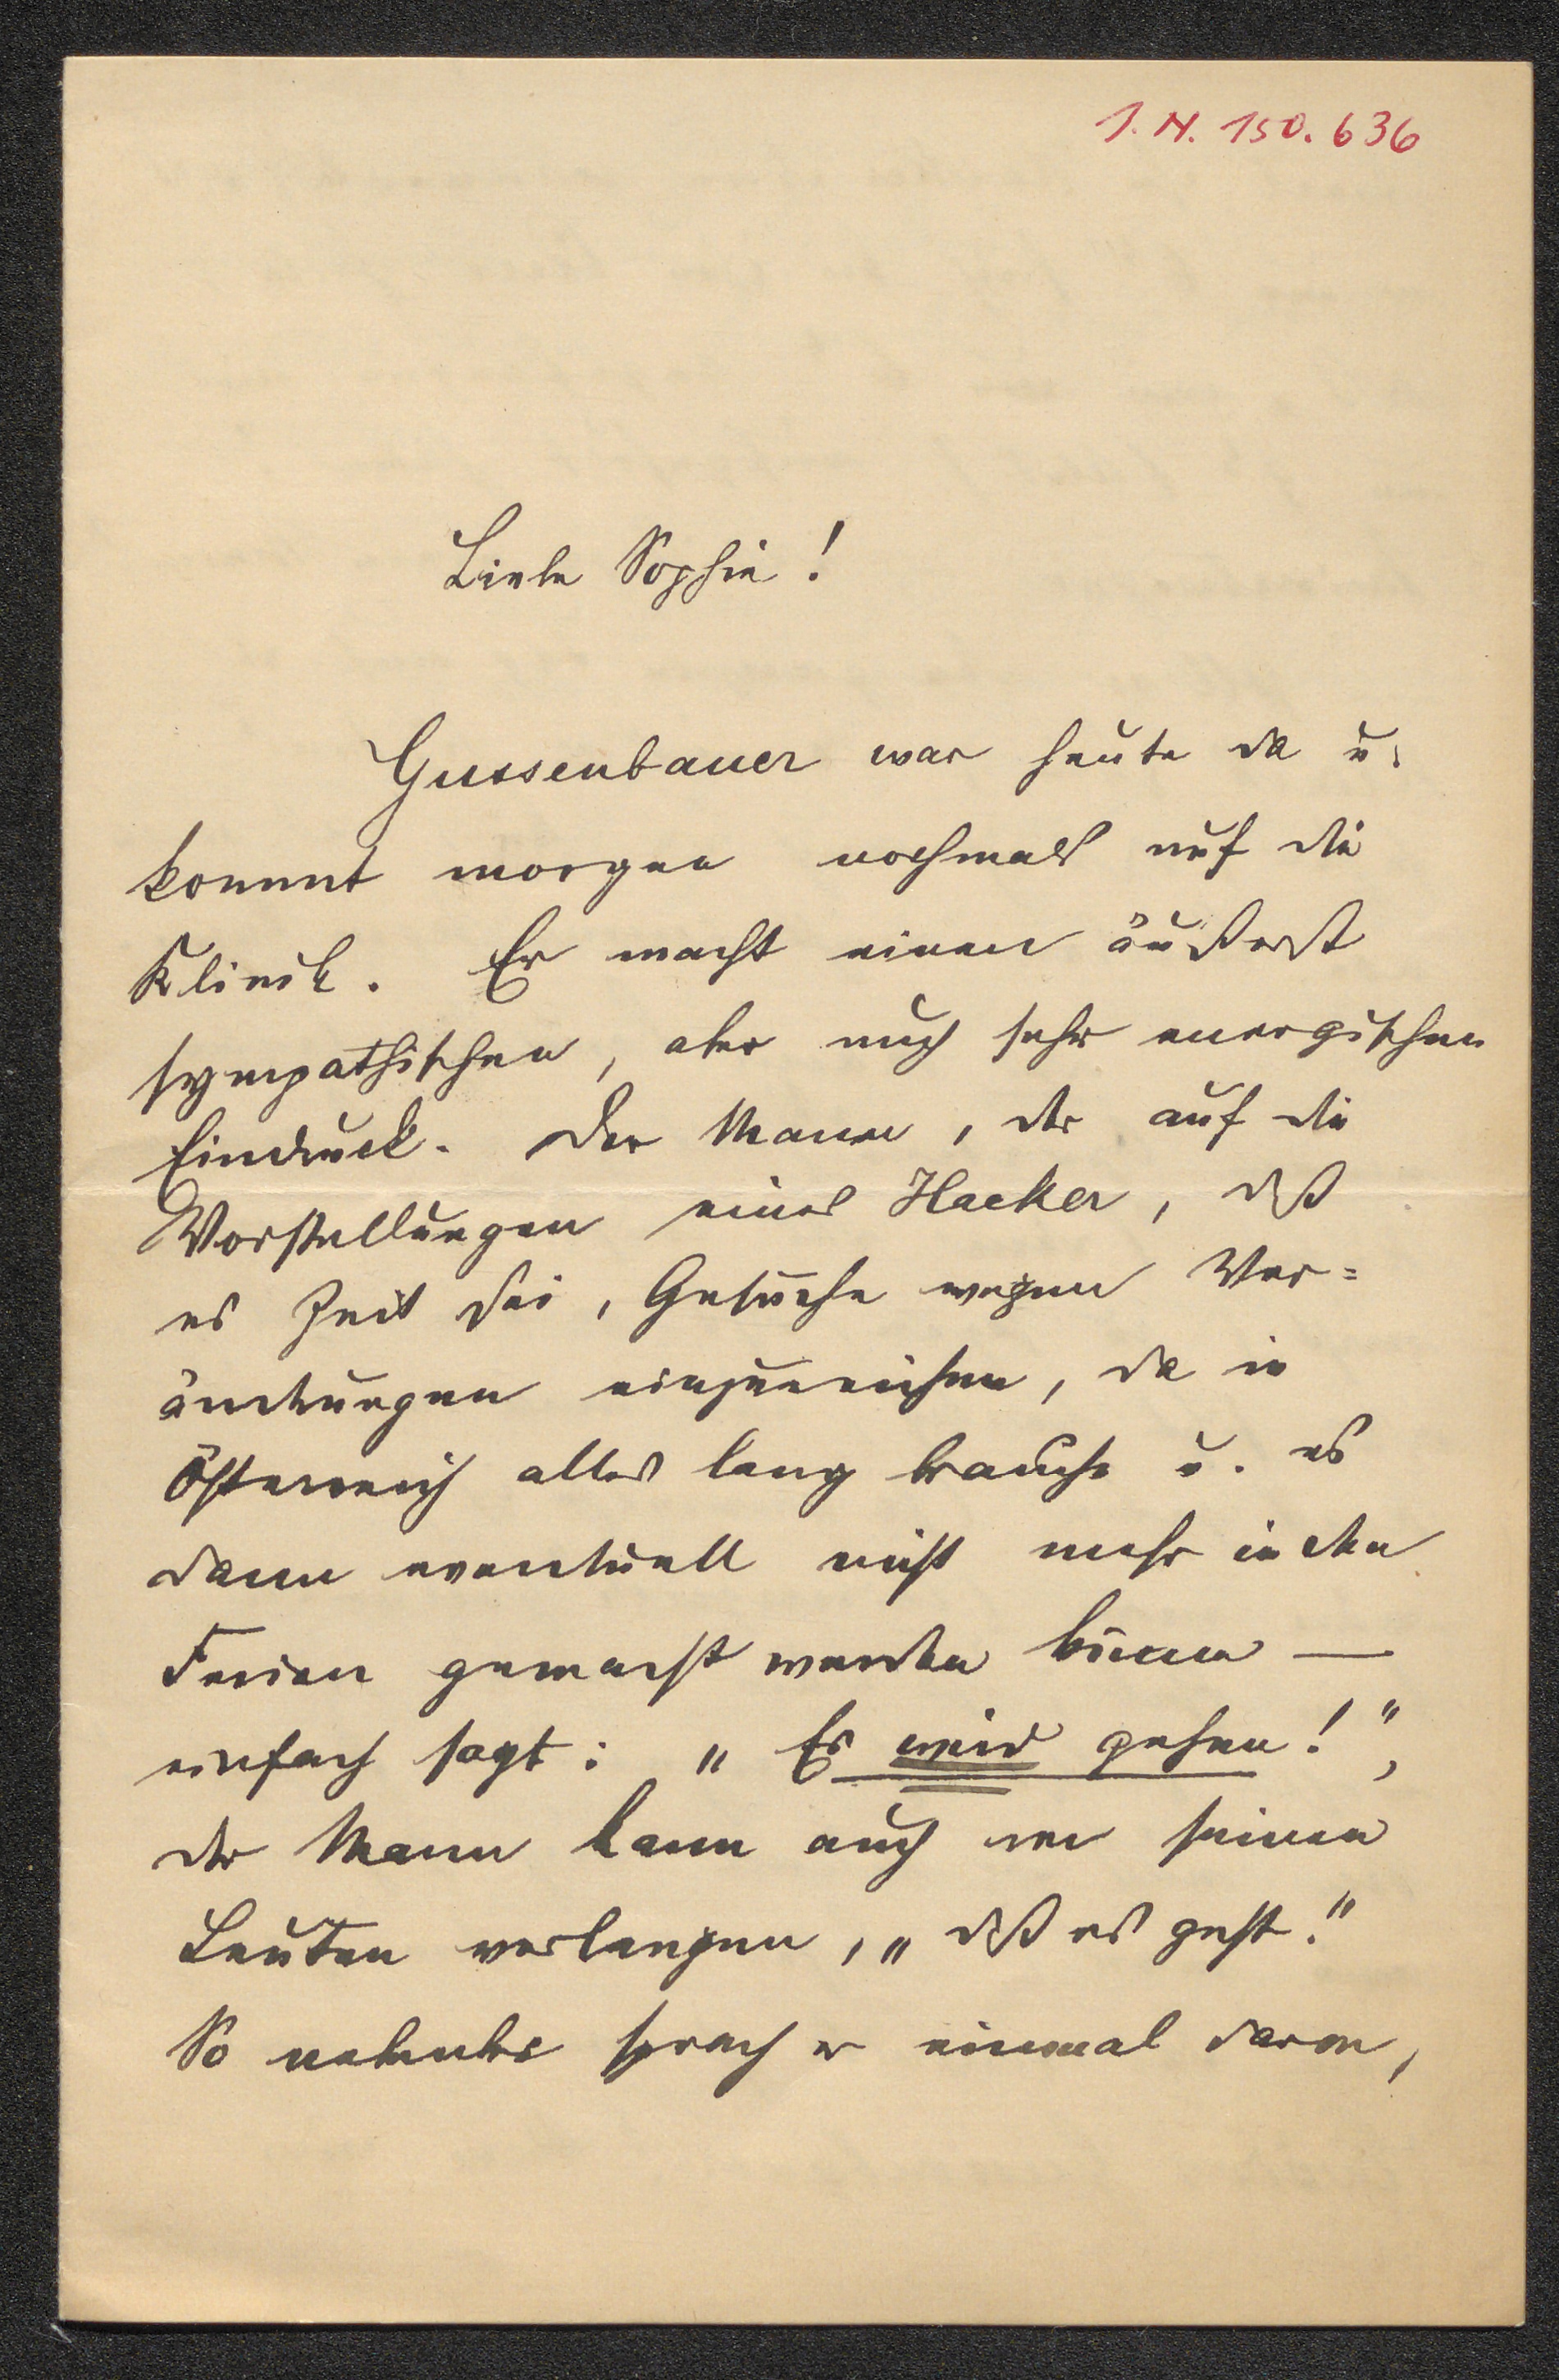 I. N. 150.636
Liebe Sophie!
Gussenbauer war heute da u.
kommt morgen nochmals auf die
Klinik. Er macht einen äußerst
sympathischen, aber auch sehr energischen
Eindruck. Der Mann, der auf die
Vorstellungen eines Hacker, dß
es Zeit sei, Gesuche wegen Ver=
änderungen einzureichen, da in
Österreich alles lang brauche u. es
dann eventuell nicht mehr in den
Ferien gemacht werden könne —
einfach sagt: „Es wird gehen!",
der Mann kann auch von seinen
Leuten verlangen, „dß es geht."
So nebenbei sprach er einmal davon,